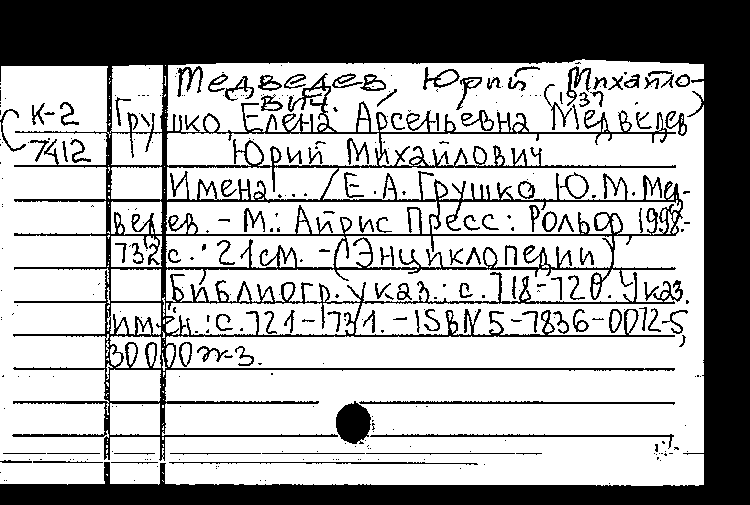 Медведев, Юрий Михайло-
вич. (1937)
К-2 Грушко, Елена Арсеньевна, Медведев
7412 Юрий Михайлович
Имена!... / Е.А. Грушко, Ю.М. Мед-
ведев. - М.: Айрис Пресс: Рольф, 1998.-
732 с.; 21 см. - (Энциклопедии)
Библиогр. указ.: с.718-720. Указ.
имен.: с.721-731. - ISBN 5-7836-0072-5,
30000 э-з.